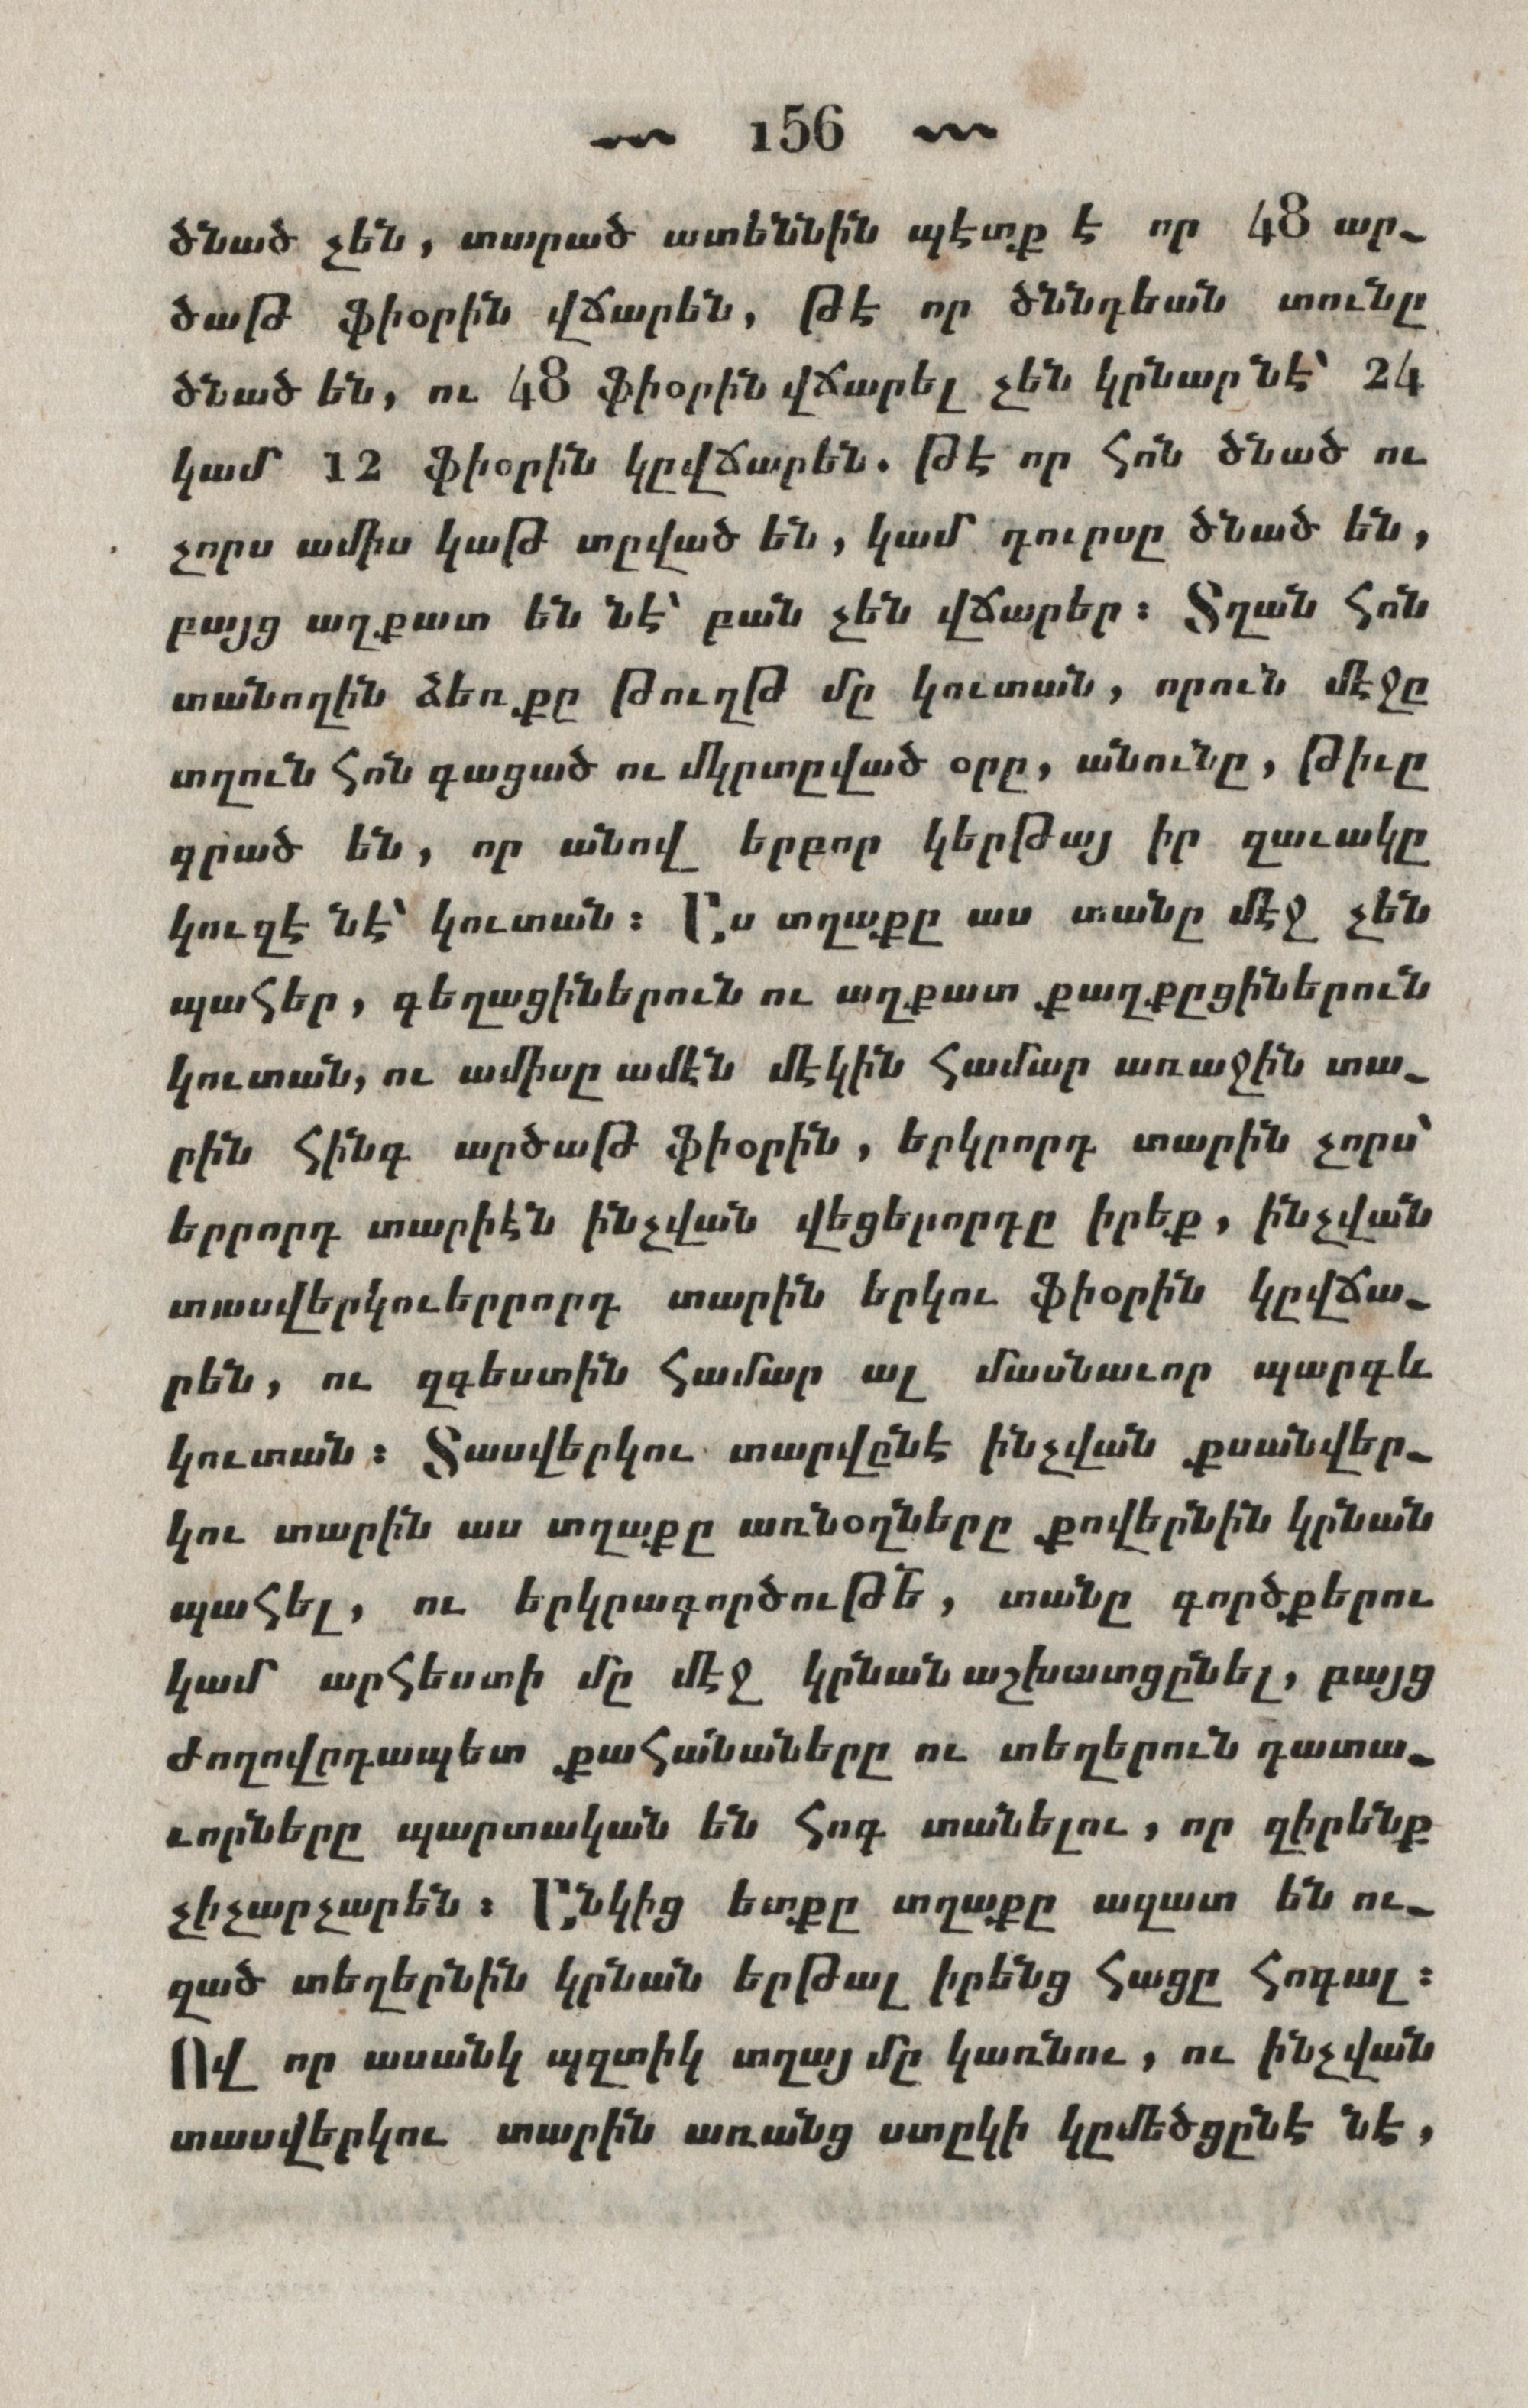 156
ծնած չեն, տարած ատեննին պէտք է որ 48 ար֊
ծաթ ֆիօրին վճարեն, թէ որ ծննդեան տունը
ծնած են, ու 48 ֆիօրին վճարել չեն կրնար նէ՝ 24
կամ 12 ֆիօրին կըվճարեն. թէ որ հոն ծնած ու
չորս ամիս կաթ տըված են, կամ դուրսը ծնած են,
բայց աղքատ են նէ՝ բան չեն վճարեր։ Տղան հոն
տանողին ձեռքը թուղթ մը կուտան, որուն մէջը
տղուն հոն գացած ու մկրտըված օրը, անունը, թիւը
գրած են, որ անով երբոր կերթայ իր զաւակը
կուզէ նէ՝ կուտան։ Աս տղաքը աս տանը մէջ չեն
պահեր, գեղացիներուն ու աղքատ քաղքըցիներուն
կուտան, ու ամիսը ամէն մէկին համար առաջին տա֊
րին հինգ արծաթ ֆիօրին, երկրորդ տարին չորս՝
երրորդ տարիէն ինչվան վեցերորդը իրեք, ինչվան
տասվերկուերրորդ տարին երկու ֆիօրին կըվճա֊
րեն, ու զգեստին համար ալ մասնաւոր պարգև
կուտան։ Տասվերկու տարվընէ ինչվան քսանվեր֊
կու տարին աս տղաքը առնօղները քովերնին կրնան
պահել, ու երկրագործութե՟, տանը գործքերու
կամ արհեստի մը մէջ կրնան աշխատցընել, բայց
ժողովըրդապետ քահանաները ու տեղերուն դատա֊
ւորները պարտական են հոգ տանելու, որ զիրենք
չիչարչարեն։ Անկից ետքը տղաքը ազատ են ու֊
զած տեղերնին կրնան երթալ իրենց հացը հոգալ։
Ով որ ասանկ պզտիկ տղայ մը կառնու, ու ինչվան
տասվերկու տարին առանց ստըկի կըմեծցընէ նէ,